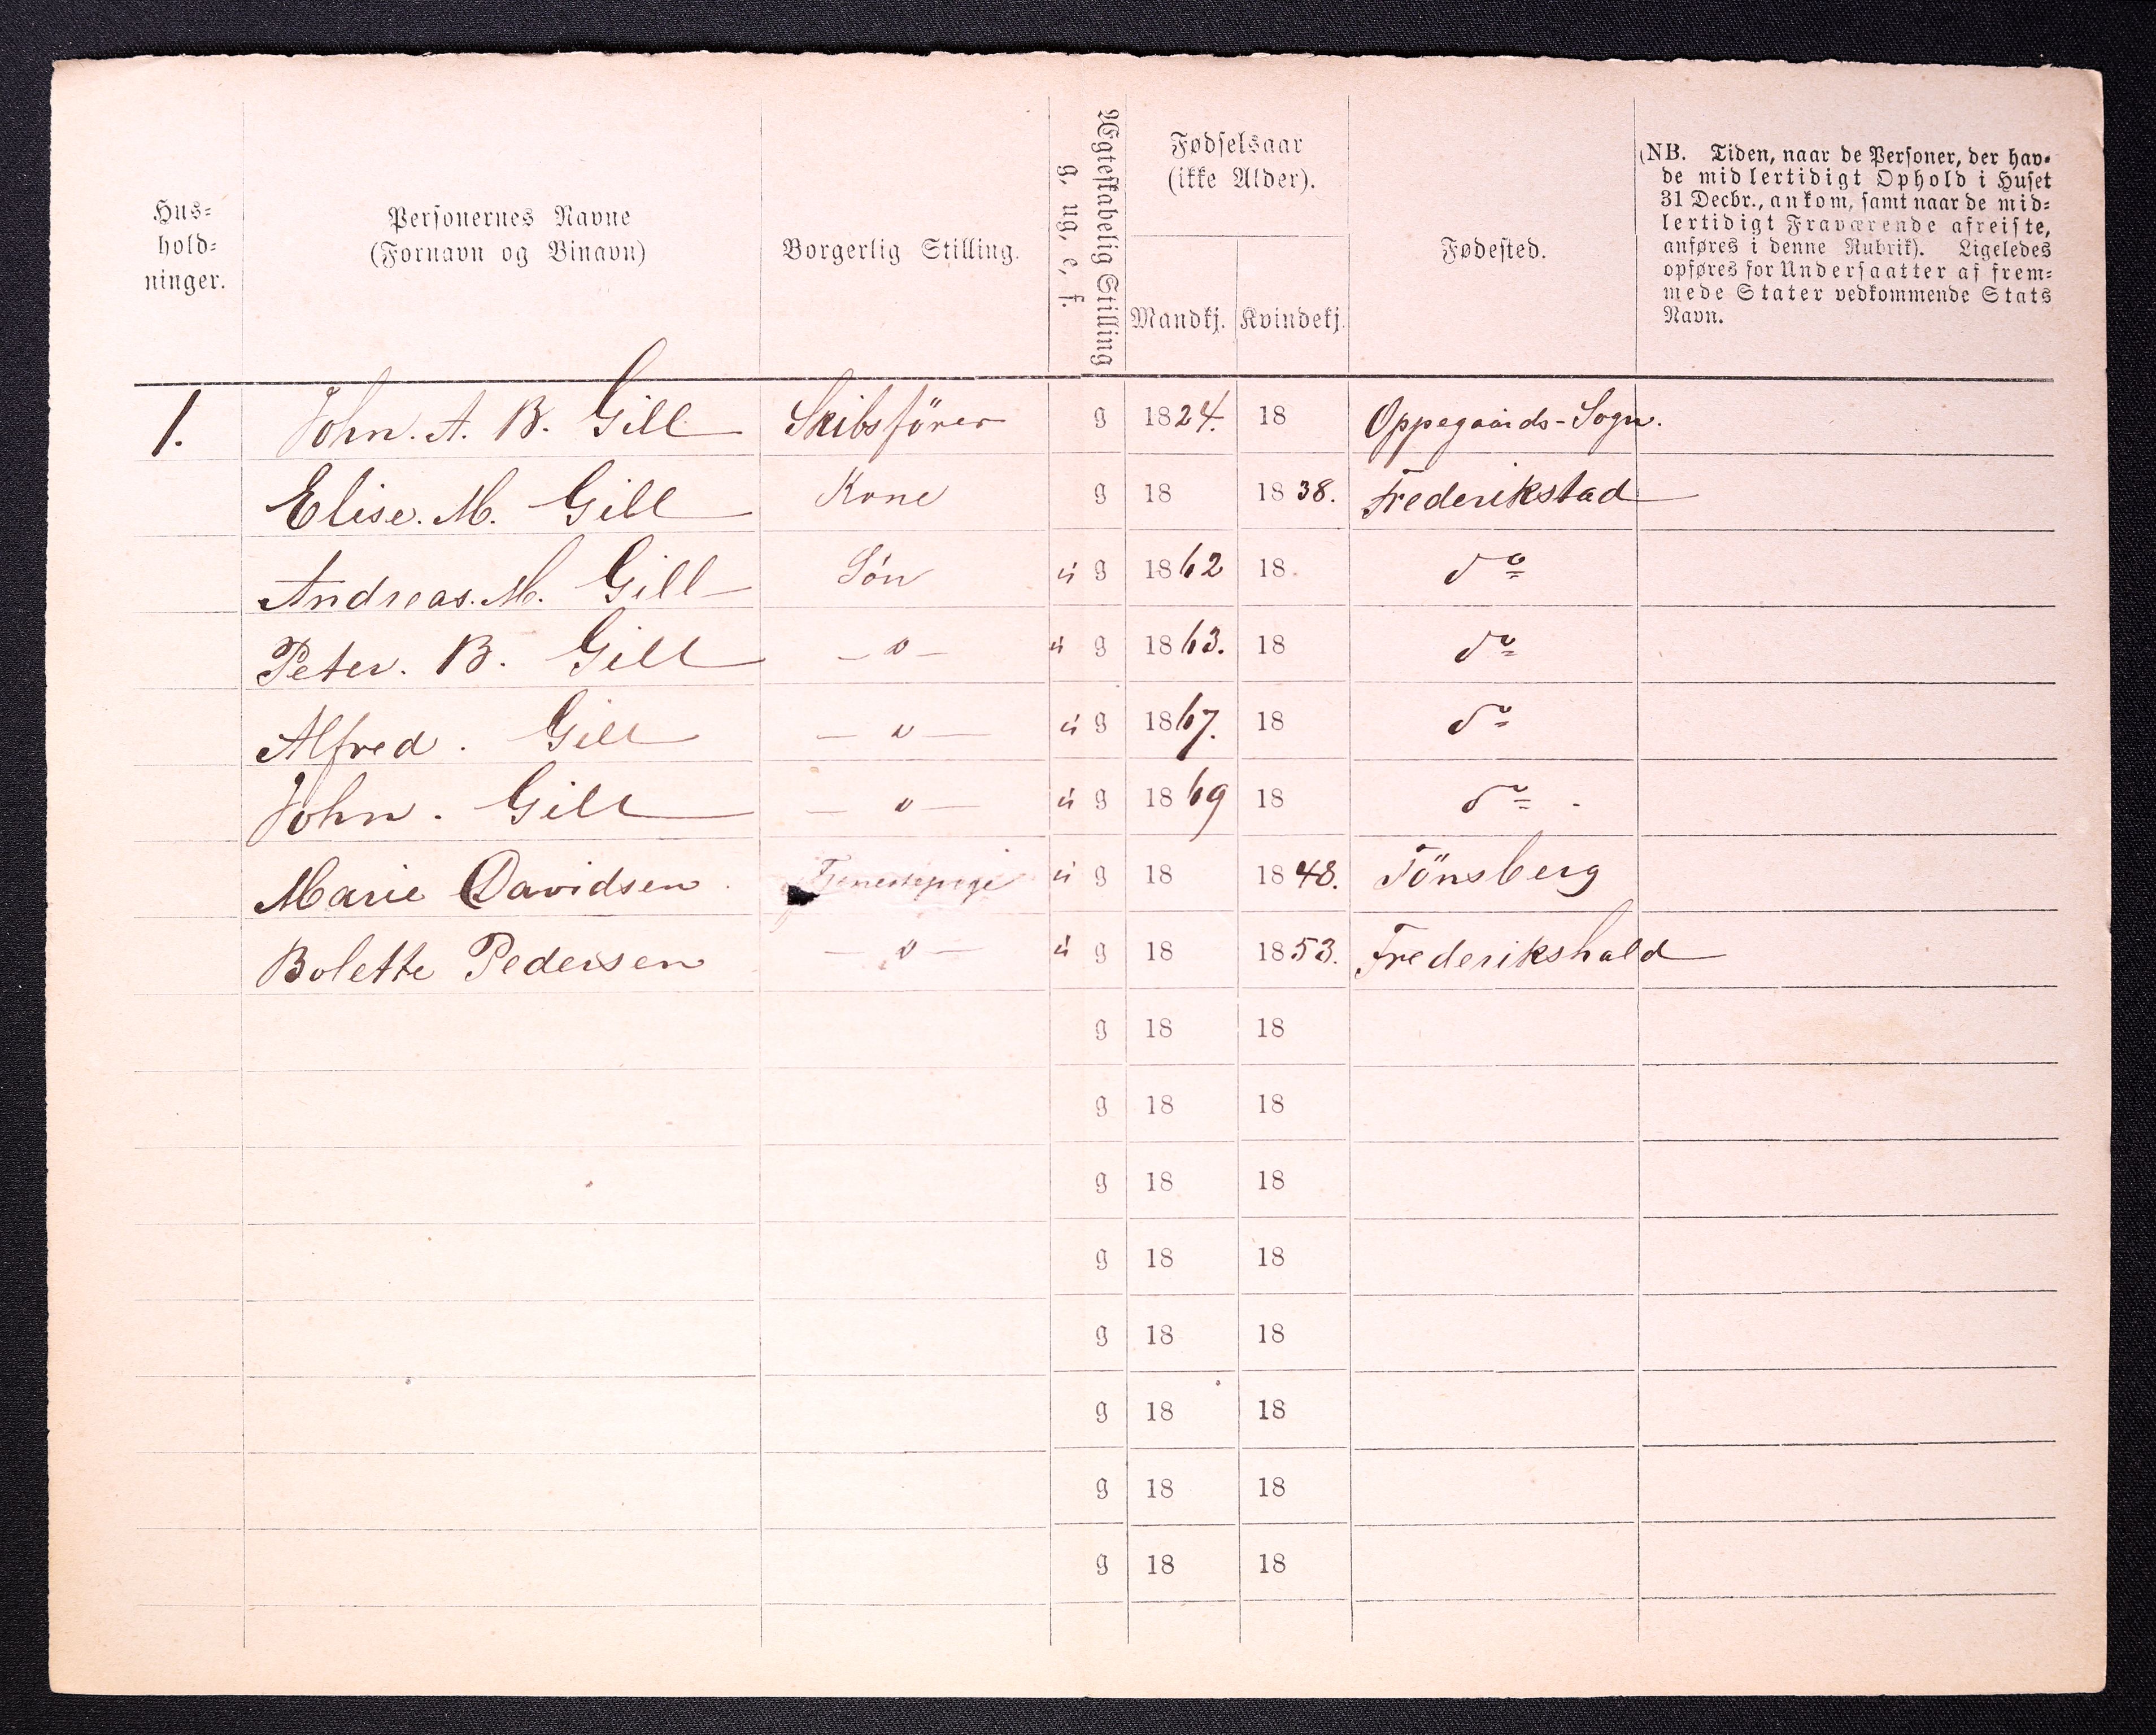 Hus=
hold=
ninger.
Personernes Navne
(Fornavn og Binavn)
Borgerlig Stilling.
Ægteskabelig Stilling
g, ug, e, f.
Fødselsaar
(ikke Alder).
Mandkj. Kvindekj.
Fødested.
(NB. Tiden, naar de Personer, der hav-
de midlertidigt Ophold i Huset
31 Decbr., ankom, samt naar de mid=
lertidigt Fraværende afreiste,
anføres i denne Rubrik). Ligeledes
opføres for Undersaatter af frem=
mede Stater vedkommende Stats
Navn.
1. John. A. B. Gill Skibsförer g 1824. 18 Oppegaards-Sogn.
Elise. M. Gill Kone g 18 1838. Frederikstad
Andreas. M. Gill Sön u g 1862 18 do
Peter. B. Gill -"- u g 1863. 18 do
Alfred. Gill -"- u g 1867. 18 do
John. Gill -"- u g 1869 18 do.
Marie Davidsen Tjenestepige u g 18 1848. Tönsberg
Bolette Pedersen -"- u g 18 1853. Frederikshald
g 18 18
g 18 18
g 18 18
g 18 18
g 18 18
g 18 18
g 18 18
g 18 18